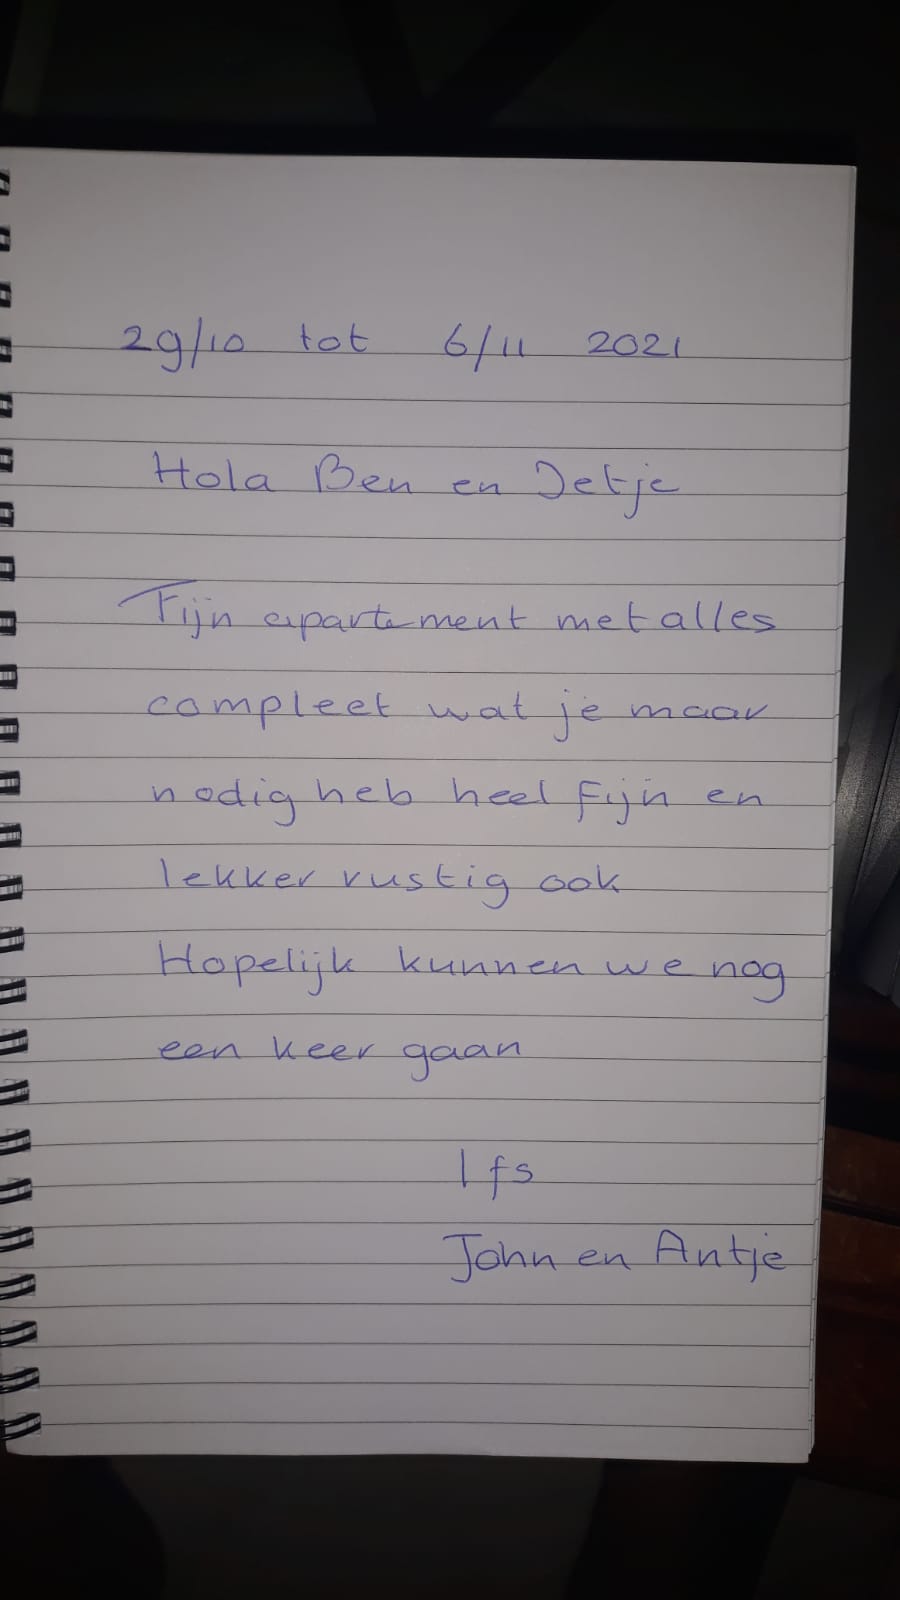 29/10 tot 6/11 2021
Hola Ben en Jetje
Fijn apartement met alles
compleet wat je maar
nodig heb heel fijn en
lekker rustig ook
Hopelijk kunnen we nog
een keer gaan
lfs
John en Antje